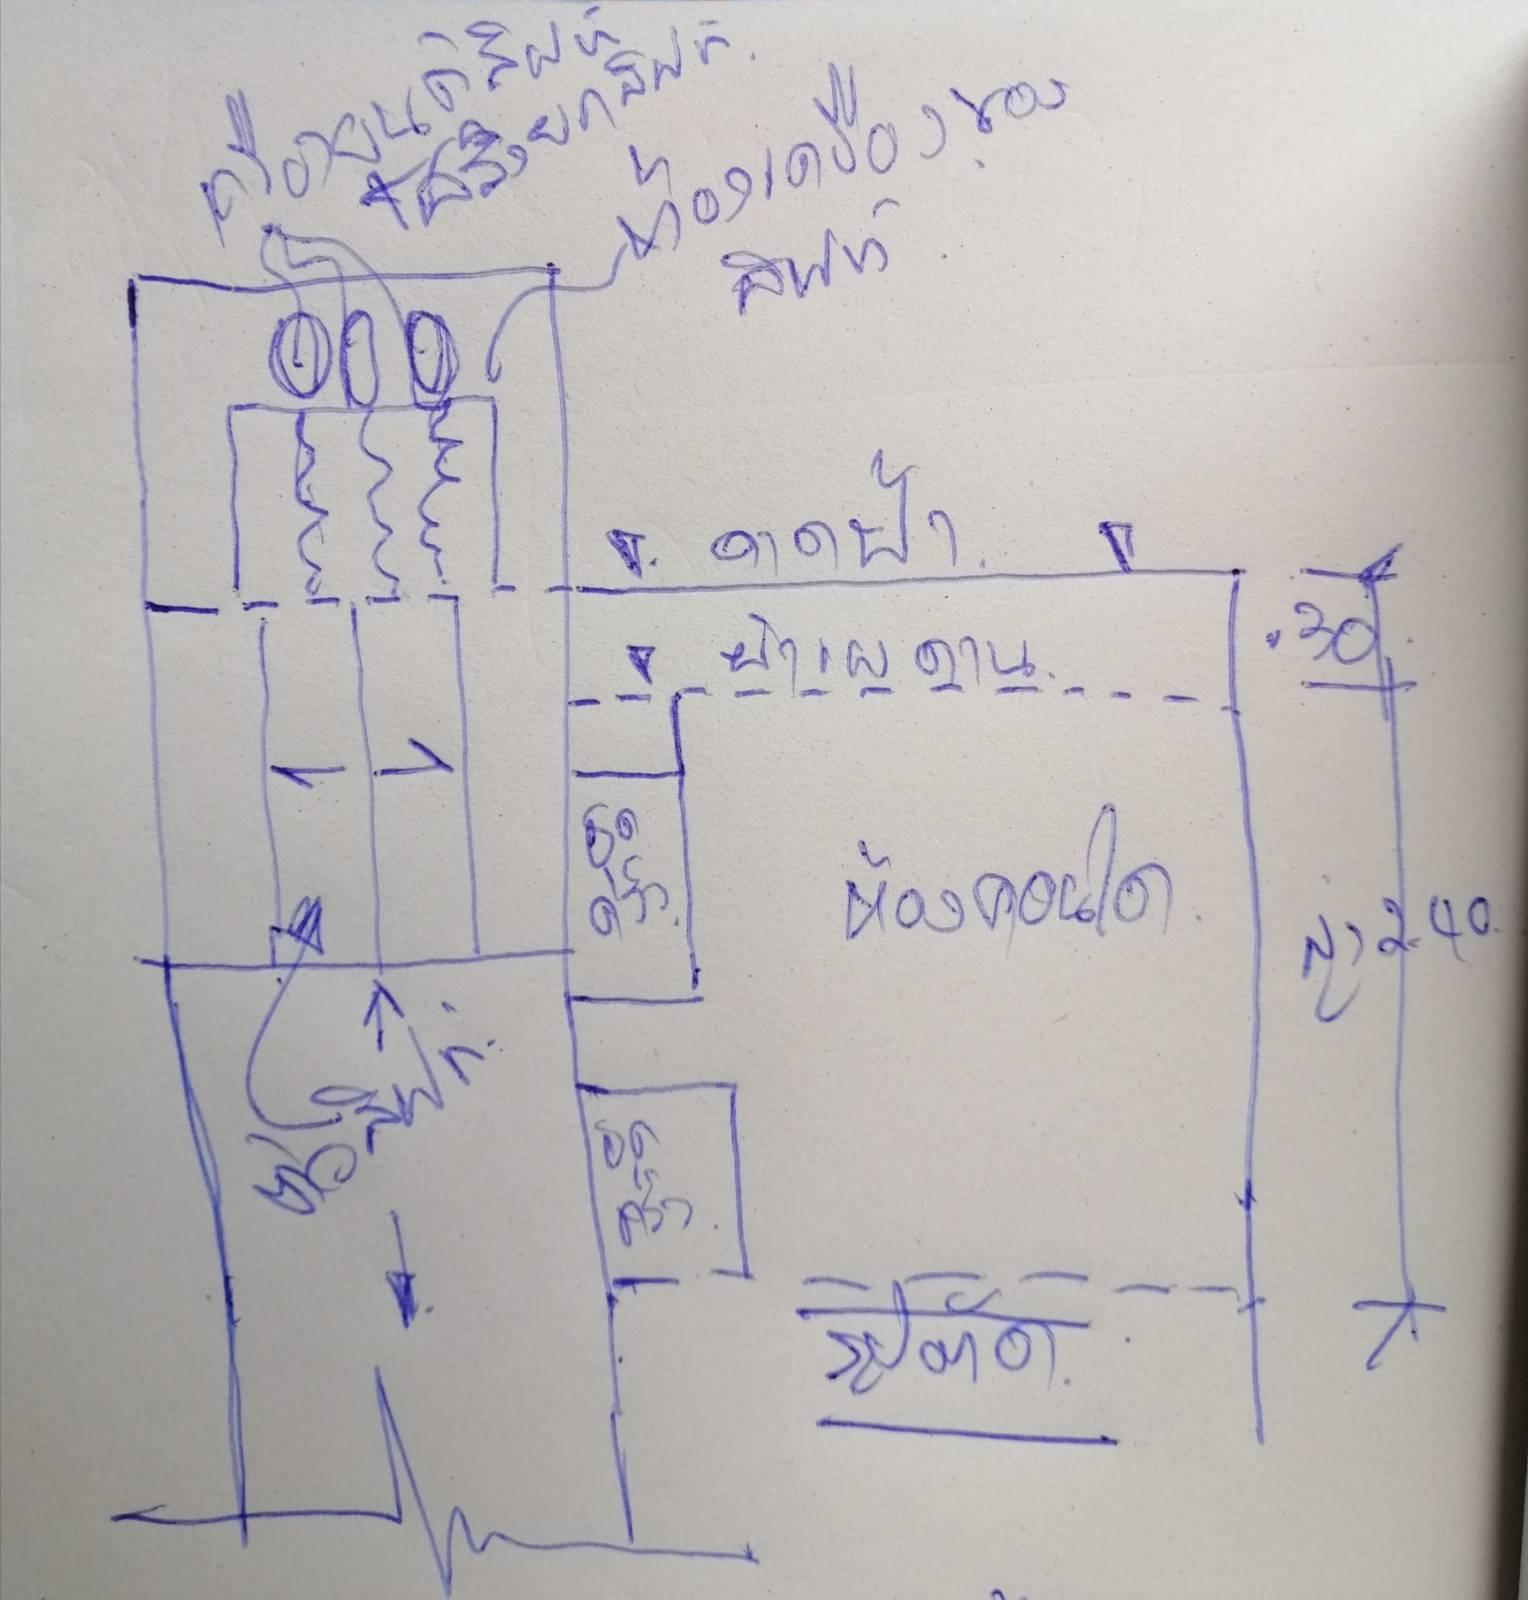 เครื่องยนต์ลิฟท์
ลิฟท์.
ห้องเครื่องของ
ลิฟท์.
ดาดฟ้า.
.30
ฝ้าเพดาน.
ชุด
ครัว.
ห้องคอนโด.
สูง 2.40.
ตัวลิฟท์.
ชุด
ครัว.
รูปตัด.